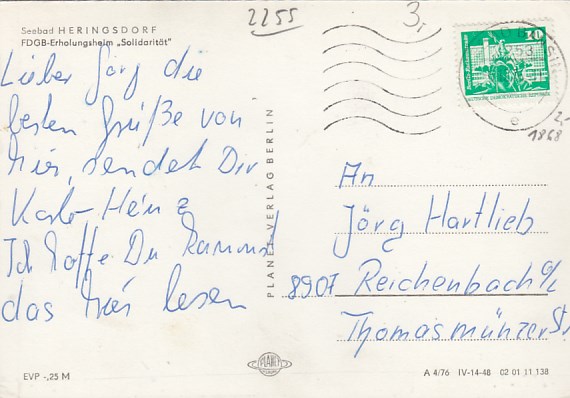 2255
3,-
Seebad HERINGSDORF
FDGB-Erholungsheim „Solidarität“
Lieber Jörg die
besten Grüße von
hier, sendet Dir
Karl-Heinz
Ich hoffe Du kannst
das hier lesen
PLANET-VERLAG BERLIN
10
DEUTSCHE DEMOKRATISCHE REPUBLIK
253
e
2,-
1868
An
Jörg Hartlieb
8907 Reichenbach O/L
Thomasmünzer St.
EVP -,25 M
PLANET
A 4/76 IV-14-48 02 01 11 138